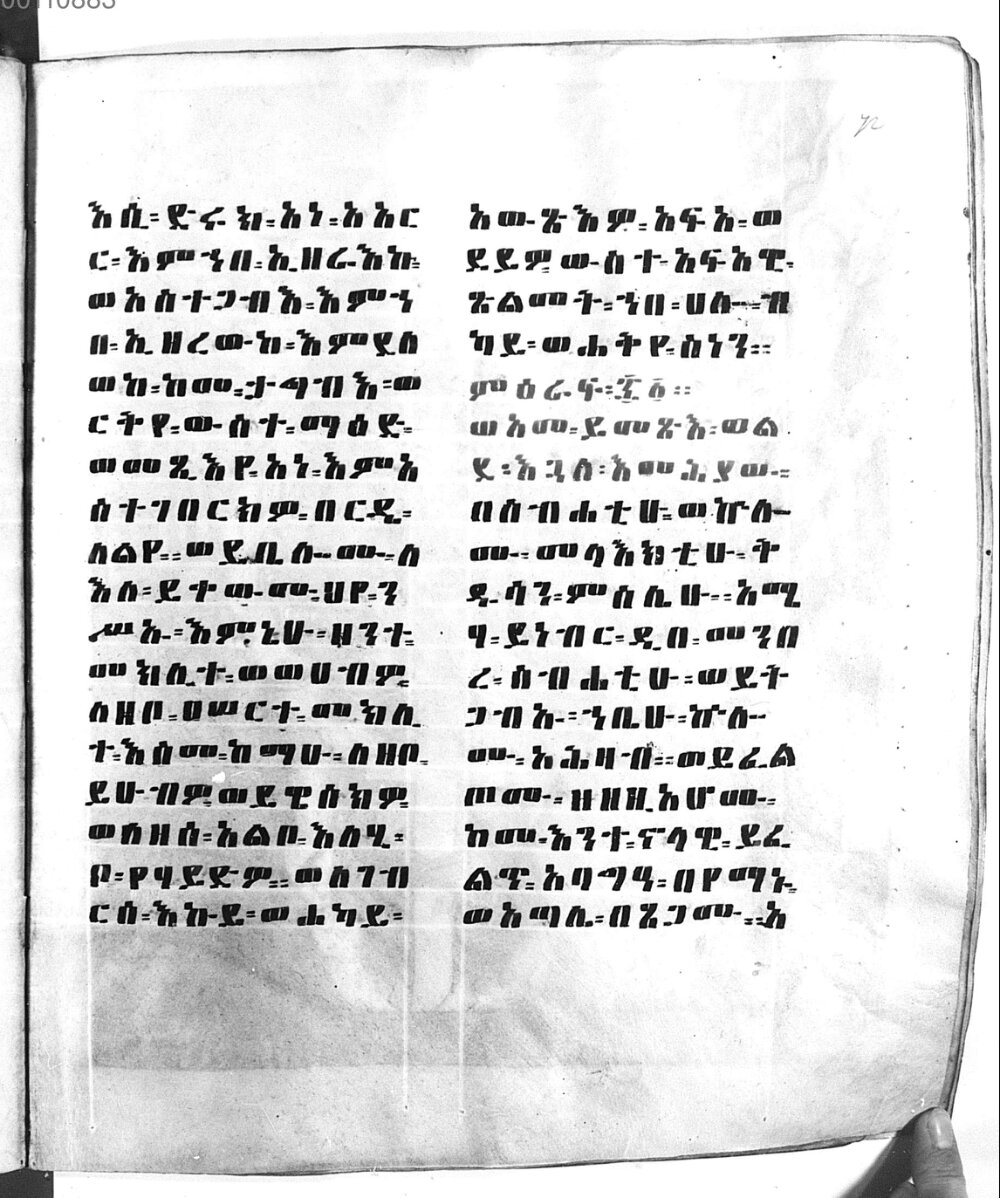 እሲ፡ድሩክ፡አነ፡አአር
ር፡እምኀበ፡ኢዘራእኩ፡
ወአስተጋብእ፡እምኀ
በ፡ኢዘረውኩ፡እምደለ
ወከ፡ከመ፡ታግብእ፡ወ
ርቅየ፡ውስተ፡ማዕድ፡
ወመጺእየ፡አነ፡እምአ
ስተገበርክም፡በርዲ፡
ለልየ። ወይቤሎሙ፡ለ
እለ፡ይተውሙ፡ህየ፡ን
ሥኡ፡እምኔሁ፡ዘንተ፡
መክሊተ፡ወወሀብዎ
ለዘቦ፡ዐሠርተ፡መክሊ
ተ፡እስመ፡ከማሁ፡ለዘቦ፡
ይሁብዎ፡ወይዌስክዎ
ወለዘሰ፡አልቦ፡እለሂ፡
ቦ፡የሃይድዎ። ወለገብ
ርሰ፡እኩይ፡ወሐካይ፡
አውጽእዎ፡አፍአ፡ወ
ደይዎ፡ውስተ፡አፍአዊ፡
ጽልመት፡ኀበ፡ሀሎ፡ብ
ካይ፡ወሐቅየ፡ስነን።
ምዕራፍ፡
ወአመ፡ይመጽእ፡ወል
ደ፡እጓለ፡እመሕያው፡
በስብሐቲሁ፡ወኵሎ
ሙ፡መላእክቲሁ፡ቅ
ዱሳን፡ምስሌሁ፡አሜ
ሃ፡ይነብር፡ዲበ፡መንበ
ረ፡ስብሐቲሁ፡ወይት
ጋብኡ፡ኀቤሁ፡ኵሎ
ሙ፡አሕዛብ። ወይፈል
ጦሙ፡ዘዘዚአሆሙ፡
ከመ፡እንተ፡ኖላዊ፡ይፈ
ልጥ፡አባግዓ፡በየማኑ፡
ወአጣሊ፡በፀጋሙ። አ